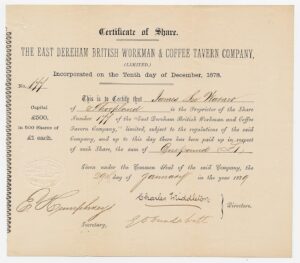 Certificate of Share.
THE EAST DEREHAM BRITISH WORKMAN & COFFEE TAVERN COMPANY,
(LIMITED.)
Incorporated on the Tenth day of December, 1878.
No. 177
Capital
£500,
in 500 Shares of
£1 each.
This is to Certify that James
of is the Proprietor of the Share
Number 177 of the "East Dereham British Workman and Coffee
Tavern Company," limited, subject to the regulations of the said
Company, and up to this day there has been paid up in respect
of such Share, the sum of One pound £1
Given under the Common Seal of the said Company, the
29th day of January 1879
Charles Middleton
Directors.
Secretary.